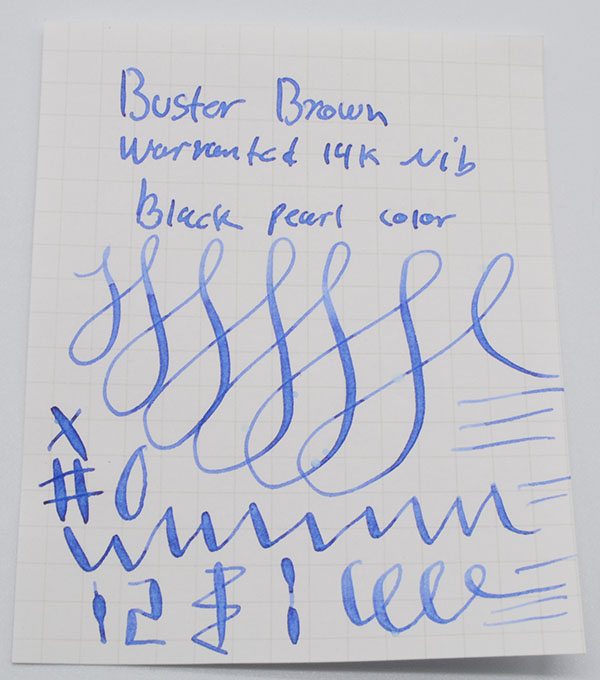 Buster Brown
Warranted 14K Nib
Black pearl color
X
# 0
1 2 $ !